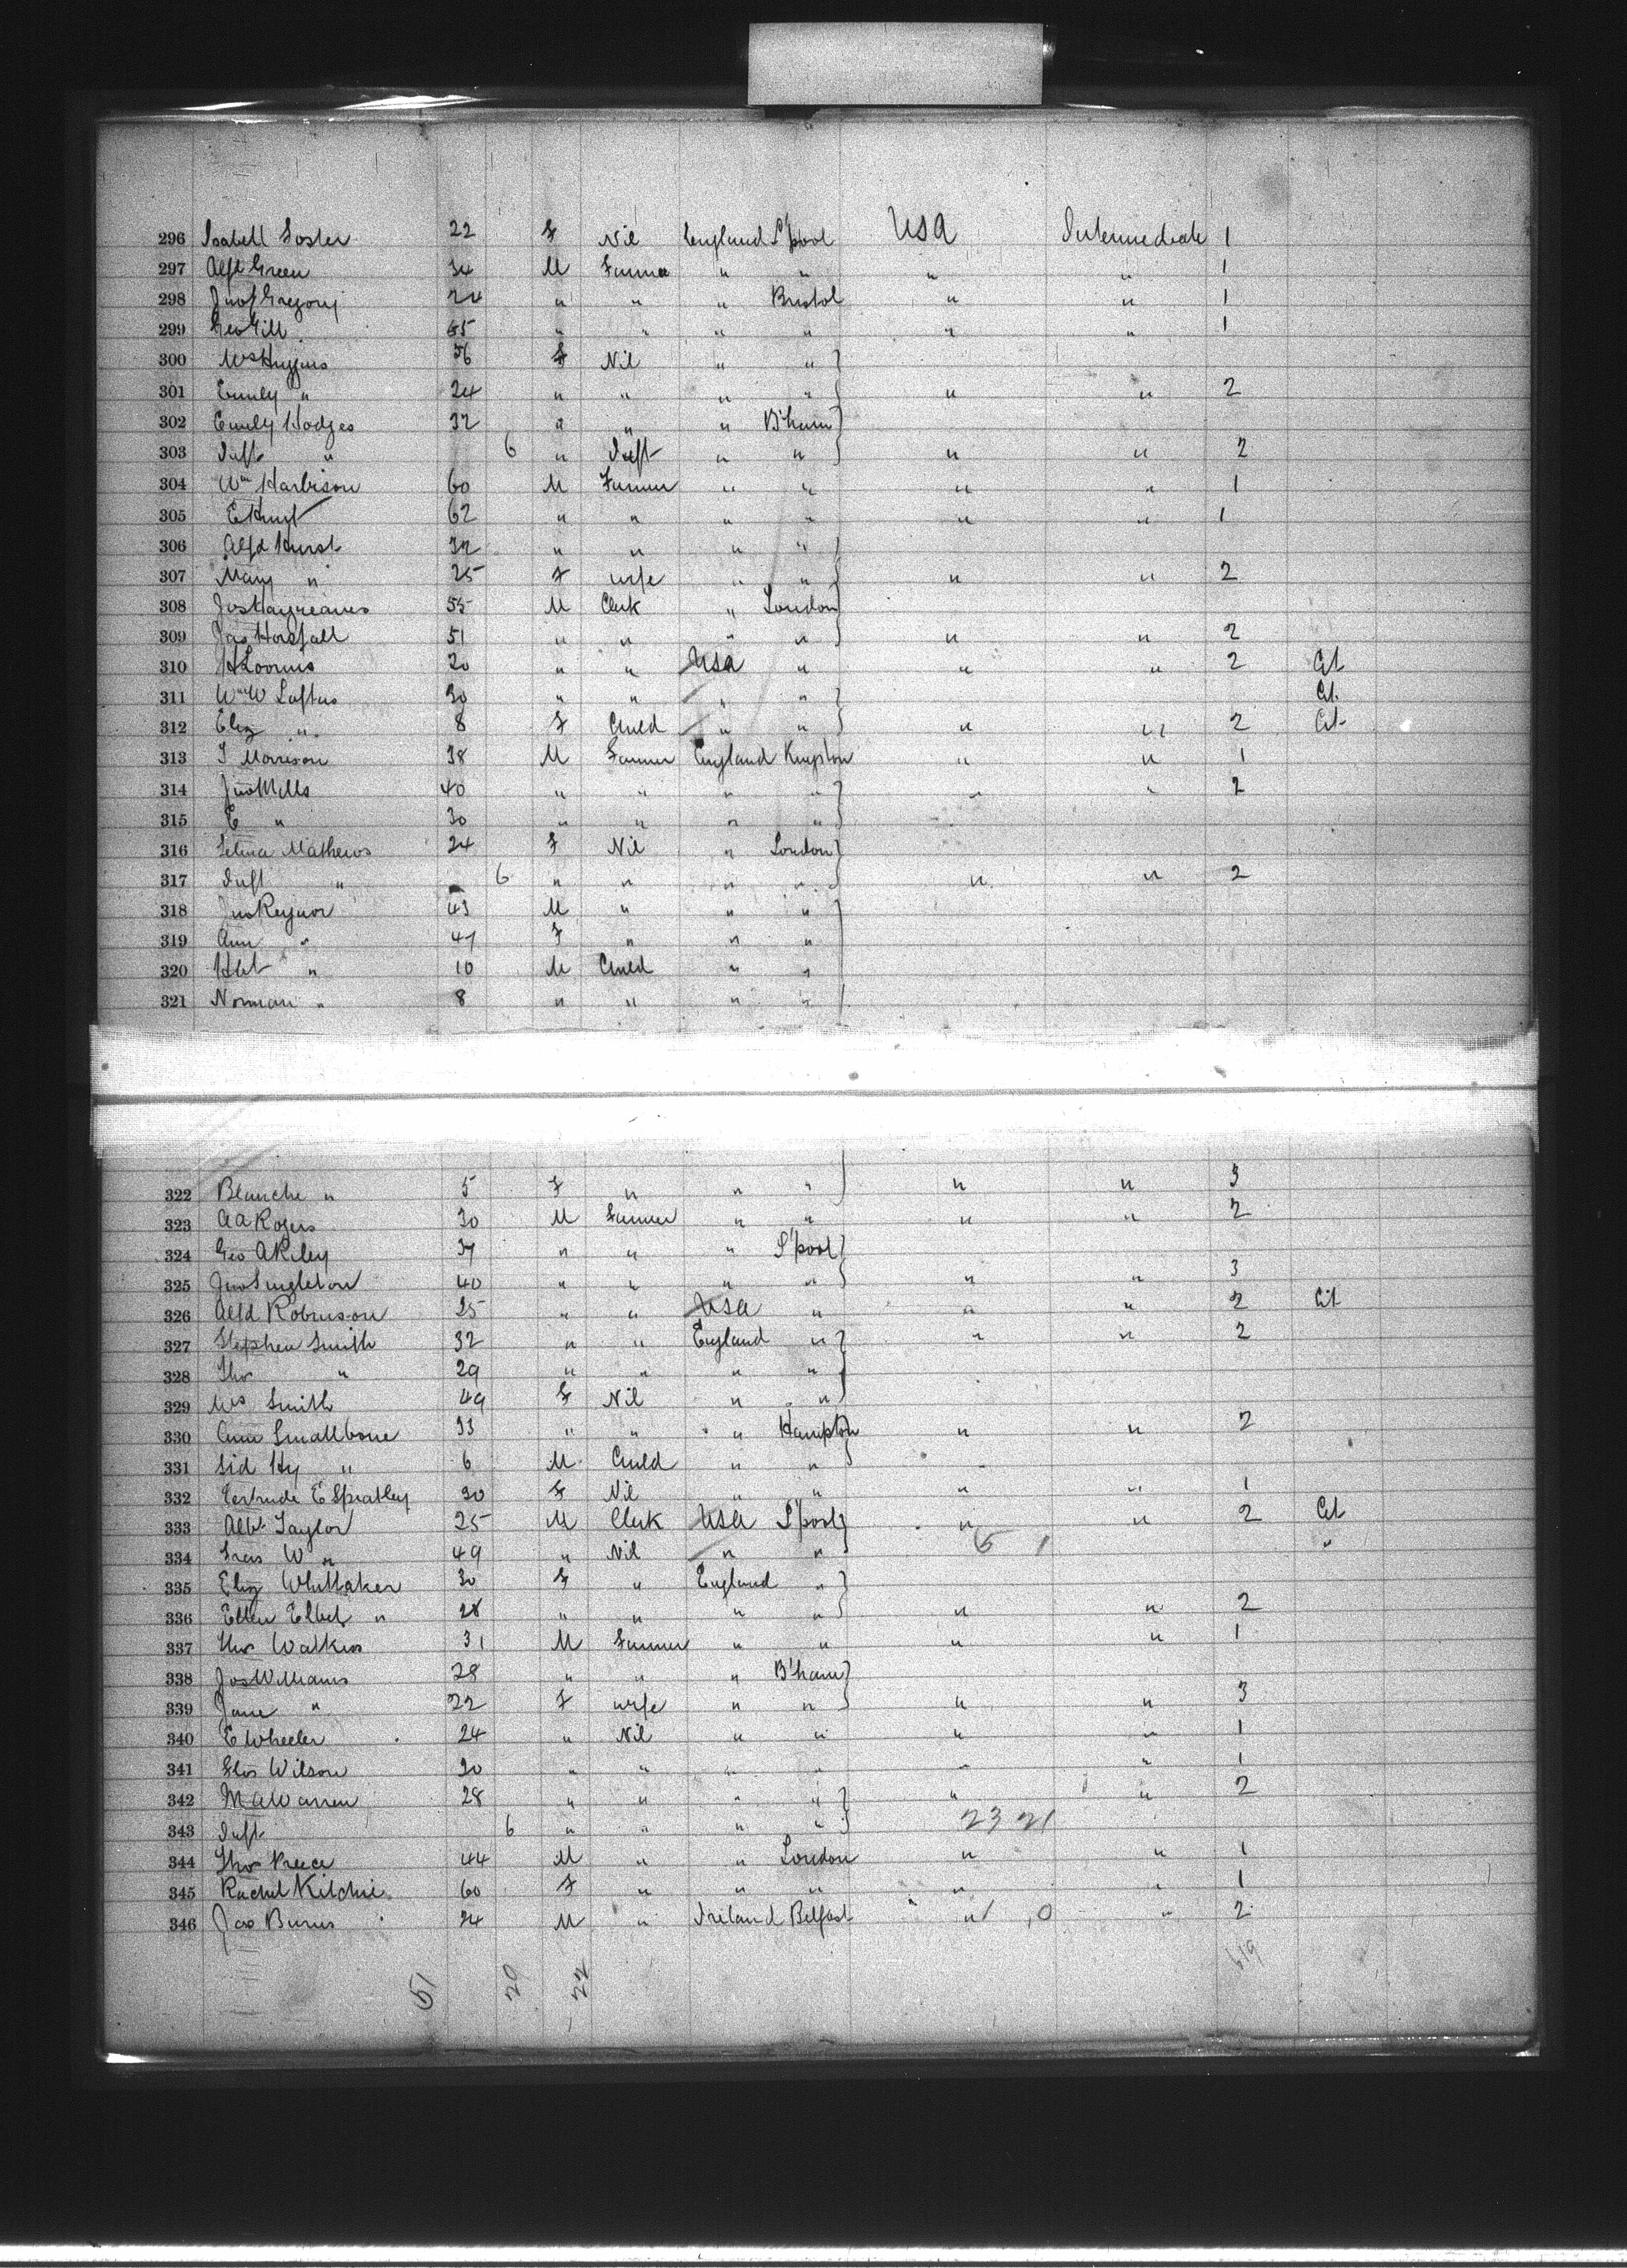 296 Isabell Foster 22 F Nil England L'pool USA Intermediate 1
297 Alfd Green 34 M Farmer " " " " 1
298 Jno Gregory 24 " " " Bristol " " 1
299 Geo Gill 65 " " " " " " 1
300 Mrs Huggins 56 F Nil " "
301 Emily " 24 " " " " " " 2
302 Emily Hodges 32 " " " B'ham
303 Inft " 6 " Inft " " " " 2
304 Wm Harbison 60 M Farmer " " " " 1
305 E Hunt 62 " " " " " " 1
306 Alfd Hurst 32 " " " "
307 Mary " 25 F wife " " " " 2
308 Jos Hargreaves 55 M Clerk " London
309 Jas Horsfall 51 " " " " " " 2
310 H Loomis 20 " " USA " " " 2 Cit
311 Wm W Loftus 30 " " " " Cit
312 Eliz " 8 F Child " " " " 2 Cit
313 J Morrison 38 M Farmer England Kempton " " 1
314 Jno Mills 40 " " " " " " 2
315 E " 30 " " " "
316 Selina Mathews 24 F Nil " London
317 Inft " 6 " " " " " " 2
318 Jno Reynor 43 M " " "
319 Ann " 47 F " " "
320 Hbt " 10 M Child " "
321 Norman " 8 " " " "
322 Blanche " 5 F " " " " " 3
323 A A Rogers 30 M Farmer " " " " 2
324 Geo A Riley 37 " " " L'pool
325 Jno Singleton 40 " " " " " " 3
326 Alfd Robinson 25 " " USA " " " 2 Cit
327 Stephen Smith 32 " " England " " " 2
328 Thos " 29 " " " "
329 Mrs Smith 49 F Nil " "
330 Annie Smallbone 33 " " " Hampton " " 2
331 Sid Hy " 6 M Child " " "
332 Gertrude E Spratley 30 F Nil " " " " 1
333 Albt Taylor 25 M Clerk USA L'pool " " 2 Cit
334 Fras W " 49 " Nil " " 6 1 "
335 Eliz Whittaker 30 F " England "
336 Ellen Elbth " 28 " " " " " " 2
337 Thos Watkins 31 M Farmer " " " " 1
338 Jos Williams 28 " " " B'ham
339 Jane " 22 F wife " " " " 3
340 E Wheeler 24 " Nil " " " " 1
341 Wilson 30 " " " " " " 1
342 M A Warren 28 " " " " " " 2
343 Inft 6 " " " " 23 21
344 Thos Preece 44 M " " London " " 1
345 Rachel Kitchie 60 F " " " " " 1
346 Jas Burns 24 M " Ireland Belfast " 1 0 " 2
51 29 22 619